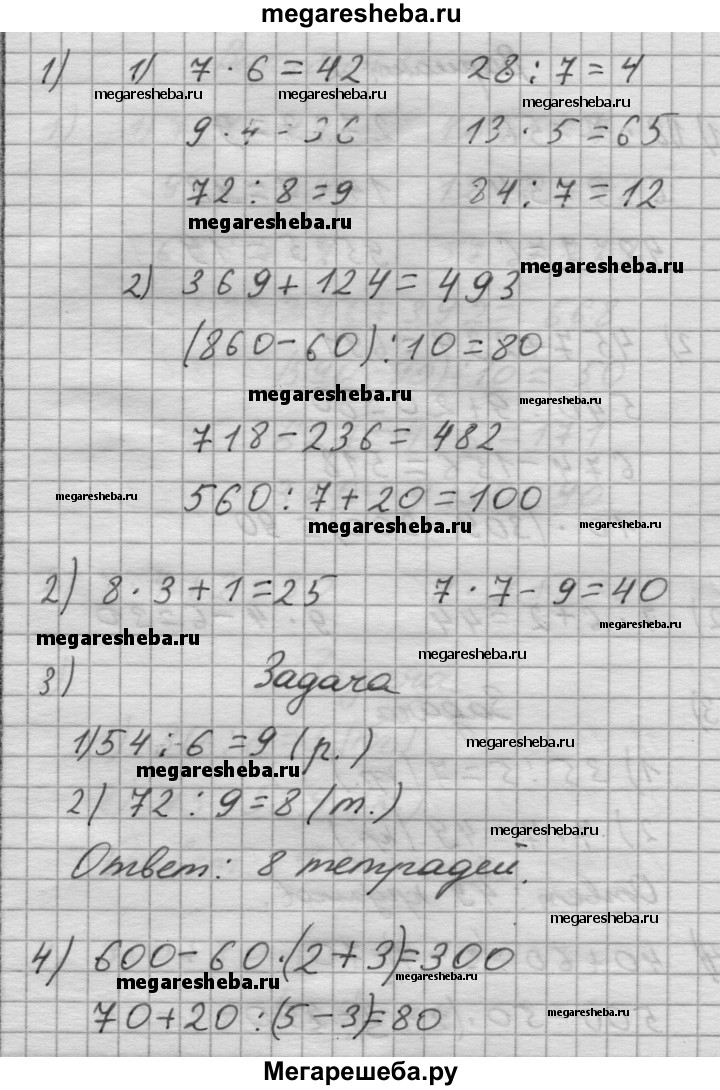 megaresheba.ru
1) 1) 7 · 6 = 42 28 : 7 = 4
megaresheba.ru megaresheba.ru megaresheba.ru
9 · 4 = 36 13 · 5 = 65
72 : 8 = 9 84 : 7 = 12
megaresheba.ru
megaresheba.ru
2) 369 + 124 = 493
(860 - 60) : 10 = 80
megaresheba.ru megaresheba.ru
718 - 236 = 482
megaresheba.ru 560 : 7 + 20 = 100
megaresheba.ru
2) 8 · 3 + 1 = 25 7 · 7 - 9 = 40
megaresheba.ru megaresheba.ru
megaresheba.ru
3) Задача
1) 54 : 6 = 9 (р.)
megaresheba.ru
megaresheba.ru
2) 72 : 9 = 8 (т.)
megaresheba.ru
Ответ: 8 тетрадей.
megaresheba.ru
4) 600 - 60 · (2 + 3) = 300
megaresheba.ru megaresheba.ru
70 + 20 : (5 - 3) = 80
megaresheba.ru
Мегарешеба.ру